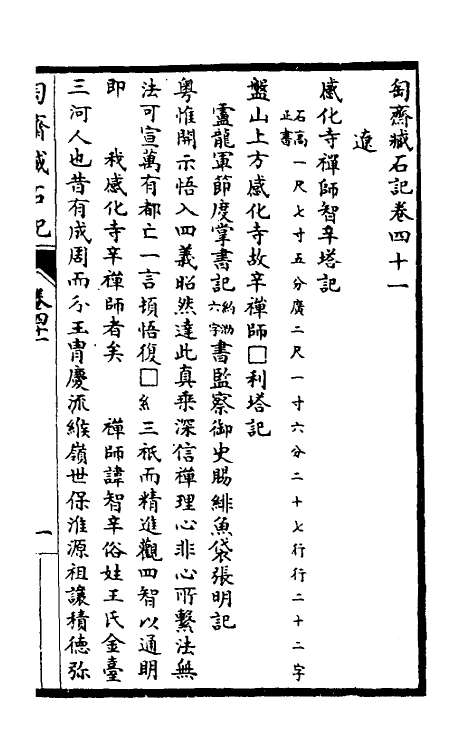 匋齋臧石記卷四十一
遼
感化寺禪師智辛塔記
石高一尺七寸五分廣二尺一寸六分二十七行行二十二字
正書
盤山上方感化寺故辛禪師□利塔記
盧龍軍節度掌書記約泐六字書監察御史賜緋魚袋張明記
粵惟開示悟入四義昭然達此真乘深信禪理心非心所繫法無
法可宣萬有都亡一言頓悟復□糸三祇而精進觀四智以通明
即　我感化寺辛禪師者矣　禪師諱智辛俗姓王氏金臺
三河人也昔有成周而分王冑慶派緱嶺世保淮源祖讓積德弥
匋齋臧石記
卷四十一
一